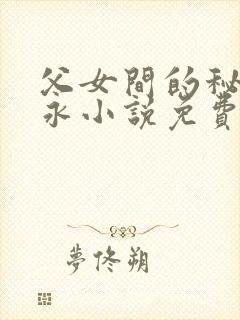 父女間的秘
永小説免費
夢佟朔